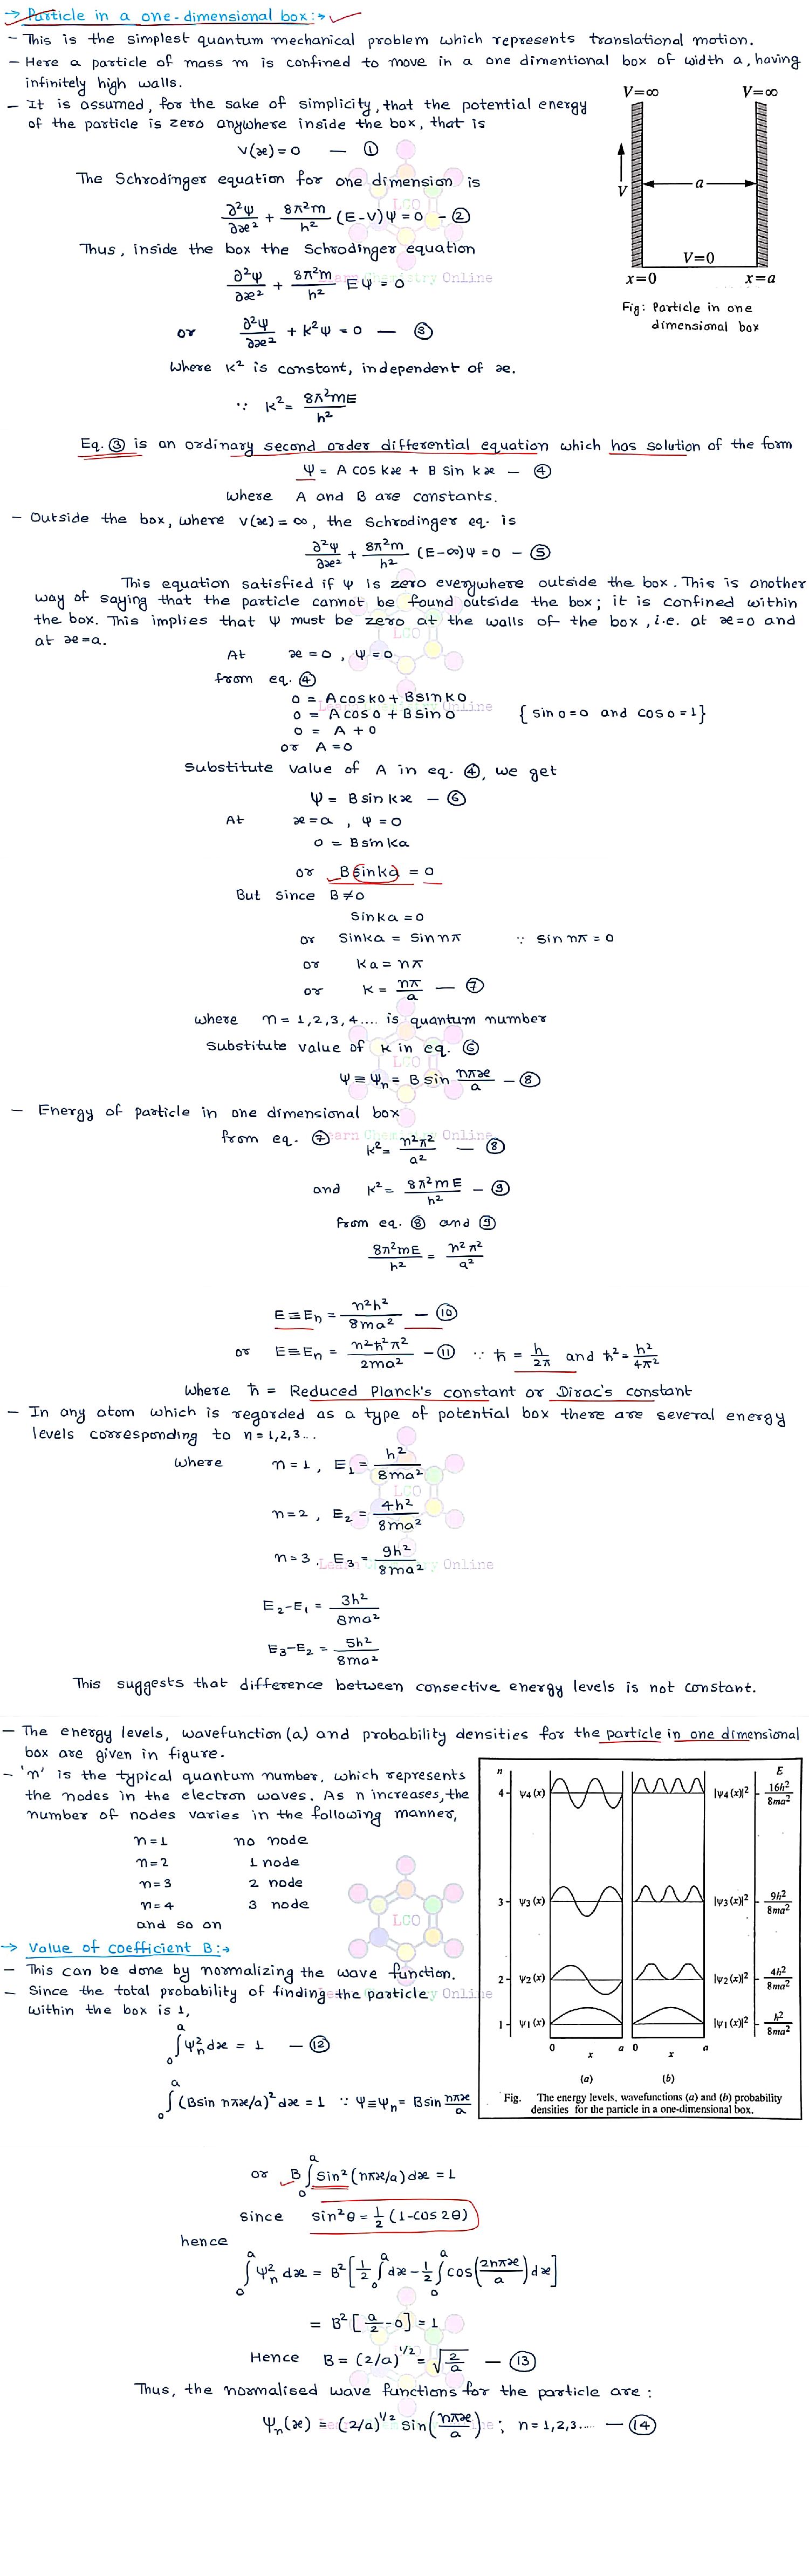 → Particle in a one-dimensional box:→
- This is the simplest quantum mechanical problem which represents translational motion.
- Here a particle of mass m is confined to move in a one dimentional box of width a, having
infinitely high walls.
- It is assumed, for the sake of simplicity, that the potential energy
of the particle is zero anywhere inside the box, that is
V(x)=0 — ①
The Schrodinger equation for one dimension is
∂²ψ/∂x² + 8π²m/h² (E-V)ψ = 0 - ②
Thus, inside the box the Schrodinger equation
∂²ψ/∂x² + 8π²m/h² Eψ = 0
or ∂²ψ/∂x² + k²ψ = 0 — ③
V=∞ V=∞
V
a
V=0
x=0 x=a
Fig: Particle in one
dimensional box
Where k² is constant, independent of x.
∵ k² = 8π²mE/h²
Eq. ③ is an ordinary second order differential equation which has solution of the form
ψ = A cos kx + B sin kx - ④
where A and B are constants.
- Outside the box, where V(x) = ∞, the Schrodinger eq. is
∂²ψ/∂x² + 8π²m/h² (E-∞)ψ = 0 - ⑤
This equation satisfied if ψ is zero everywhere outside the box. This is another
way of saying that the particle cannot be found outside the box; it is confined within
the box. This implies that ψ must be zero at the walls of the box, i.e. at x=0 and
at x=a.
At x=0, ψ=0
from eq. ④
0 = A cos k0 + B sin k0
0 = A cos 0 + B sin 0 { sin 0 = 0 and cos 0 = 1}
0 = A + 0
or A=0
Substitute value of A in eq. ④, we get
ψ = B sin kx - ⑥
At x=a, ψ=0
0 = B sin ka
or B sin ka = 0
But since B≠0
Sin ka = 0
or Sin ka = Sin nπ ∵ sin nπ = 0
or ka = nπ
or k = nπ/a — ⑦
where n = 1,2,3,4.... is quantum number
Substitute value of k in eq. ⑥
ψ ≡ ψn = B sin nπx/a - ⑧
- Energy of particle in one dimensional box
from eq. ⑦ k² = n²π²/a² — ⑧
and k² = 8π²mE/h² - ⑨
from eq. ⑧ and ⑨
8π²mE/h² = n²π²/a²
E≡En = n²h²/8ma² — ⑩
or E≡En = n²ħ²π²/2ma² - ⑪ ∵ ħ = h/2π and ħ² = h²/4π²
where ħ = Reduced Planck's constant or Dirac's constant
- In any atom which is regarded as a type of potential box there are several energy
levels corresponding to n = 1,2,3...
where n=1, E₁ = h²/8ma²
n=2, E₂ = 4h²/8ma²
n=3, E₃ = 9h²/8ma²
E₂-E₁ = 3h²/8ma²
E₃-E₂ = 5h²/8ma²
This suggests that difference between consective energy levels is not constant.
- The energy levels, wavefunction (a) and probability densities for the particle in one dimensional
box are given in figure.
- 'n' is the typical quantum number, which represents
the nodes in the electron waves. As n increases, the
number of nodes varies in the following manner,
n=1 no node
n=2 1 node
n=3 2 node
n=4 3 node
and so on
n E
4 ψ4(x) |ψ4(x)|² 16h²/8ma²
3 ψ3(x) |ψ3(x)|² 9h²/8ma²
2 ψ2(x) |ψ2(x)|² 4h²/8ma²
1 ψ1(x) |ψ1(x)|² h²/8ma²
0 x a 0 x a
(a) (b)
Fig. The energy levels, wavefunctions (a) and (b) probability
densities for the particle in a one-dimensional box.
→ Value of coefficient B:→
- This can be done by normalizing the wave function.
- Since the total probability of finding the particle
within the box is 1,
∫₀ᵃ ψn² dx = 1 — ⑫
∫₀ᵃ (B sin nπx/a)² dx = 1 ∵ ψ≡ψn = B sin nπx/a
or B ∫₀ᵃ sin² (nπx/a) dx = 1
since sin²θ = 1/2 (1-cos 2θ)
hence
∫₀ᵃ ψn² dx = B² [1/2 ∫₀ᵃ dx - 1/2 ∫₀ᵃ cos(2nπx/a) dx]
= B² [a/2 - 0] = 1
Hence B = (2/a)^1/2 = √2/a — ⑬
Thus, the normalised wave functions for the particle are:
ψn(x) = (2/a)^1/2 sin(nπx/a); n = 1,2,3..... — ⑭
LCO
Learn Chemistry Online
LCO
Learn Chemistry Online
LCO
Learn Chemistry Online
LCO
Learn Chemistry Online
LCO
Learn Chemistry Online